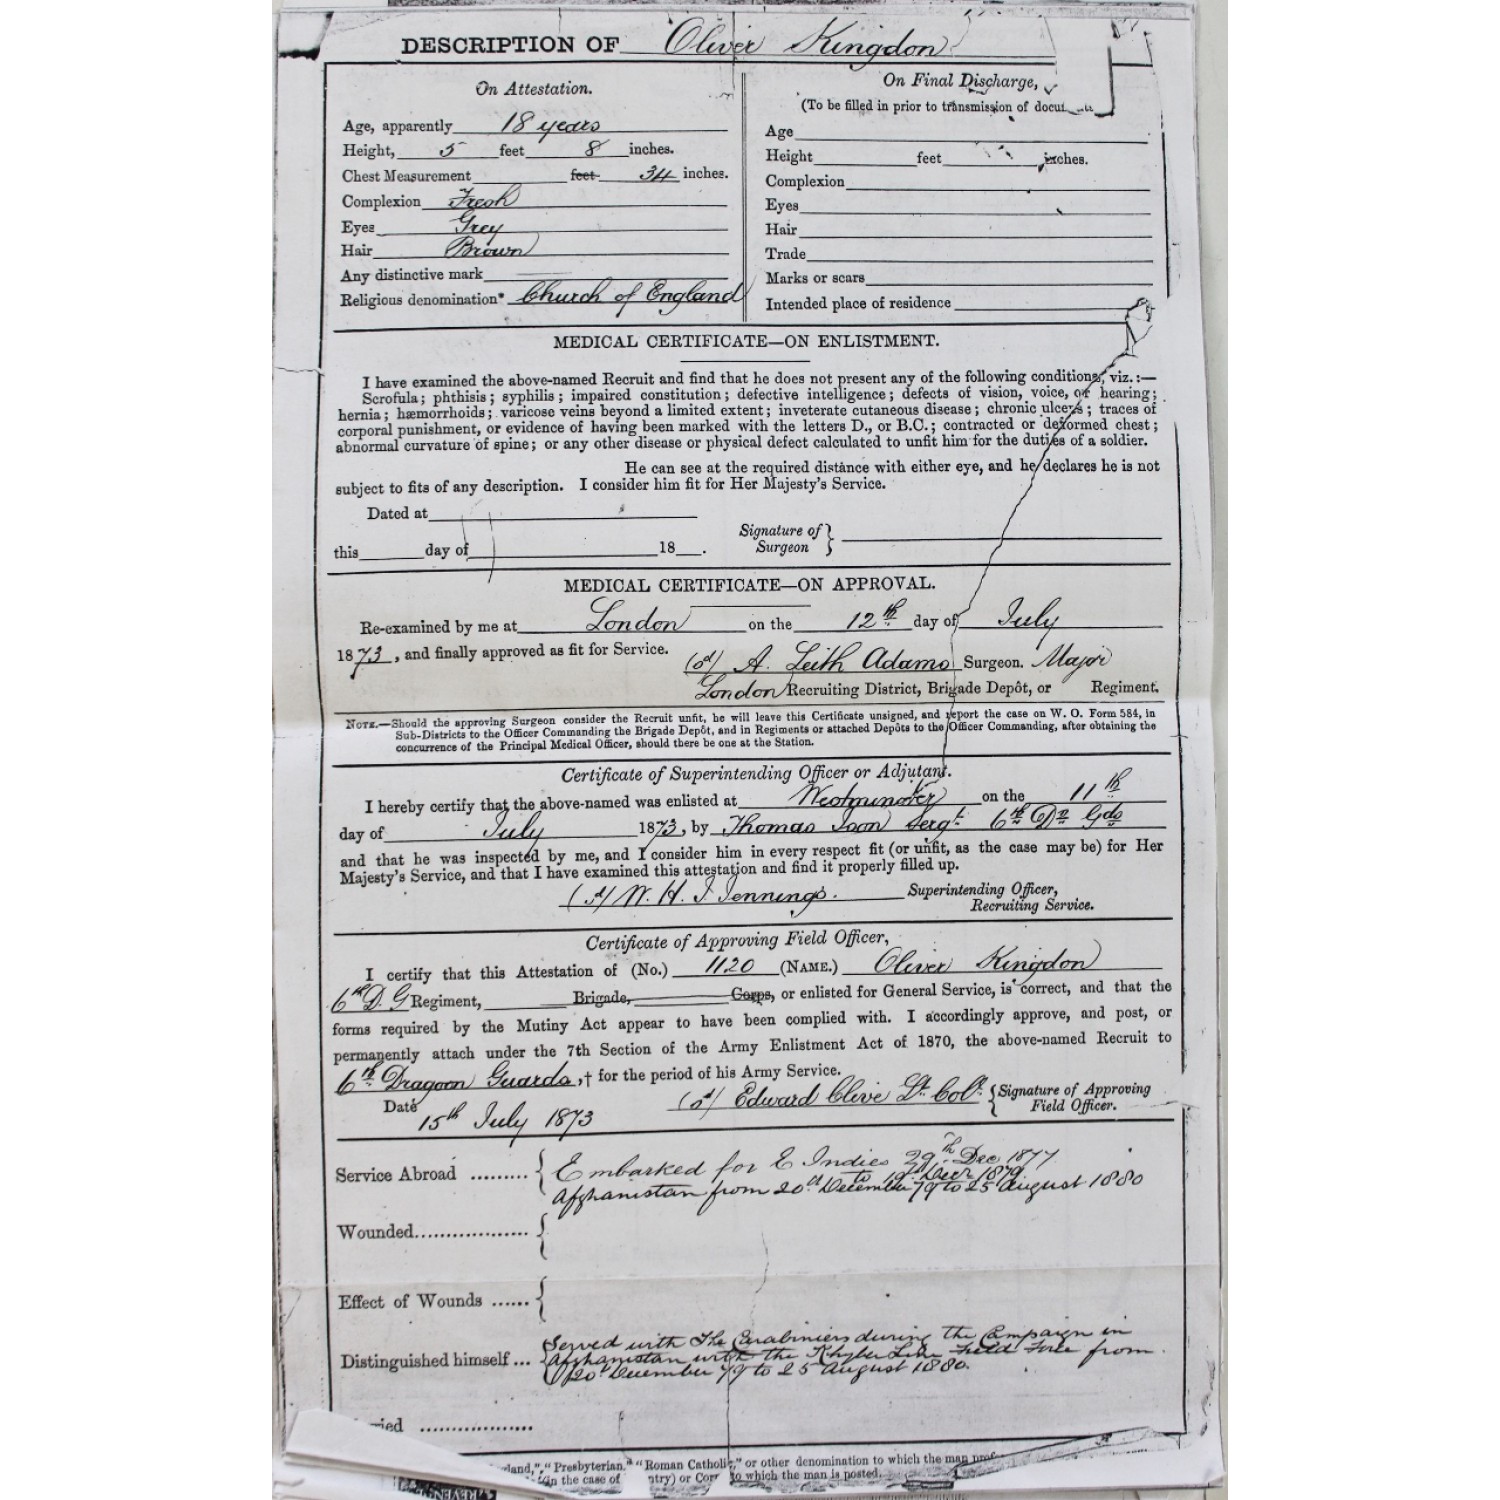 DESCRIPTION OF Oliver Kingdon
On Attestation.
Age, apparently 18 years
Height, 5 feet 8 inches.
Chest Measurement feet 34 inches.
Complexion Fresh
Eyes Grey
Hair Brown
Any distinctive mark
Religious denomination* Church of England
On Final Discharge,
(To be filled in prior to transmission of docu
Age
Height feet inches.
Complexion
Eyes
Hair
Trade
Marks or scars
Intended place of residence
MEDICAL CERTIFICATE—ON ENLISTMENT.
I have examined the above-named Recruit and find that he does not present any of the following conditions, viz.:—
Scrofula; phthisis; syphilis; impaired constitution; defective intelligence; defects of vision, voice, or hearing;
hernia; hæmorrhoids; varicose veins beyond a limited extent; inveterate cutaneous disease; chronic ulcers; traces of
corporal punishment, or evidence of having been marked with the letters D., or B.C.; contracted or deformed chest;
abnormal curvature of spine; or any other disease or physical defect calculated to unfit him for the duties of a soldier.
He can see at the required distance with either eye, and he declares he is not
subject to fits of any description. I consider him fit for Her Majesty's Service.
Dated at
this day of 18 .
Signature of Surgeon
MEDICAL CERTIFICATE—ON APPROVAL.
Re-examined by me at London on the 12th day of July
1873, and finally approved as fit for Service.
(sd) A. Leith Adams Surgeon. Major
London Recruiting District, Brigade Depôt, or Regiment.
NOTE.—Should the approving Surgeon consider the Recruit unfit, he will leave this Certificate unsigned, and report the case on W. O. Form 584, in
Sub-Districts to the Officer Commanding the Brigade Depôt, and in Regiments or attached Depôts to the Officer Commanding, after obtaining the
concurrence of the Principal Medical Officer, should there be one at the Station.
Certificate of Superintending Officer or Adjutant.
I hereby certify that the above-named was enlisted at Westminster on the 11th
day of July 1873, by Thomas Ison Sergt. 6th Dn Gds
and that he was inspected by me, and I consider him in every respect fit (or unfit, as the case may be) for Her
Majesty's Service, and that I have examined this attestation and find it properly filled up.
(sd) W. H. J. Jennings. Superintending Officer,
Recruiting Service.
Certificate of Approving Field Officer,
I certify that this Attestation of (No.) 1120 (NAME.) Oliver Kingdon
6th D. G Regiment, Brigade, Corps, or enlisted for General Service, is correct, and that the
forms required by the Mutiny Act appear to have been complied with. I accordingly approve, and post, or
permanently attach under the 7th Section of the Army Enlistment Act of 1870, the above-named Recruit to
6th Dragoon Guards,† for the period of his Army Service.
(sd) Edward Clive Lt. Col. Signature of Approving
Field Officer.
Date 15th July 1873
Service Abroad ......... Embarked for E Indies 29th Dec 1877
to 19th Decr 1879
Afghanistan from 20th December 79 to 25 August 1880
Wounded...................
Effect of Wounds ......
Distinguished himself... Served with The Carabiniers during the Campaign in
Afghanistan with the Khyber Line Field Force from
20th December 79 to 25 August 1880.
ried ..................
land," "Presbyterian," "Roman Catholic," or other denomination to which the man prof
(in the case of ntry) or Cor to which the man is posted.